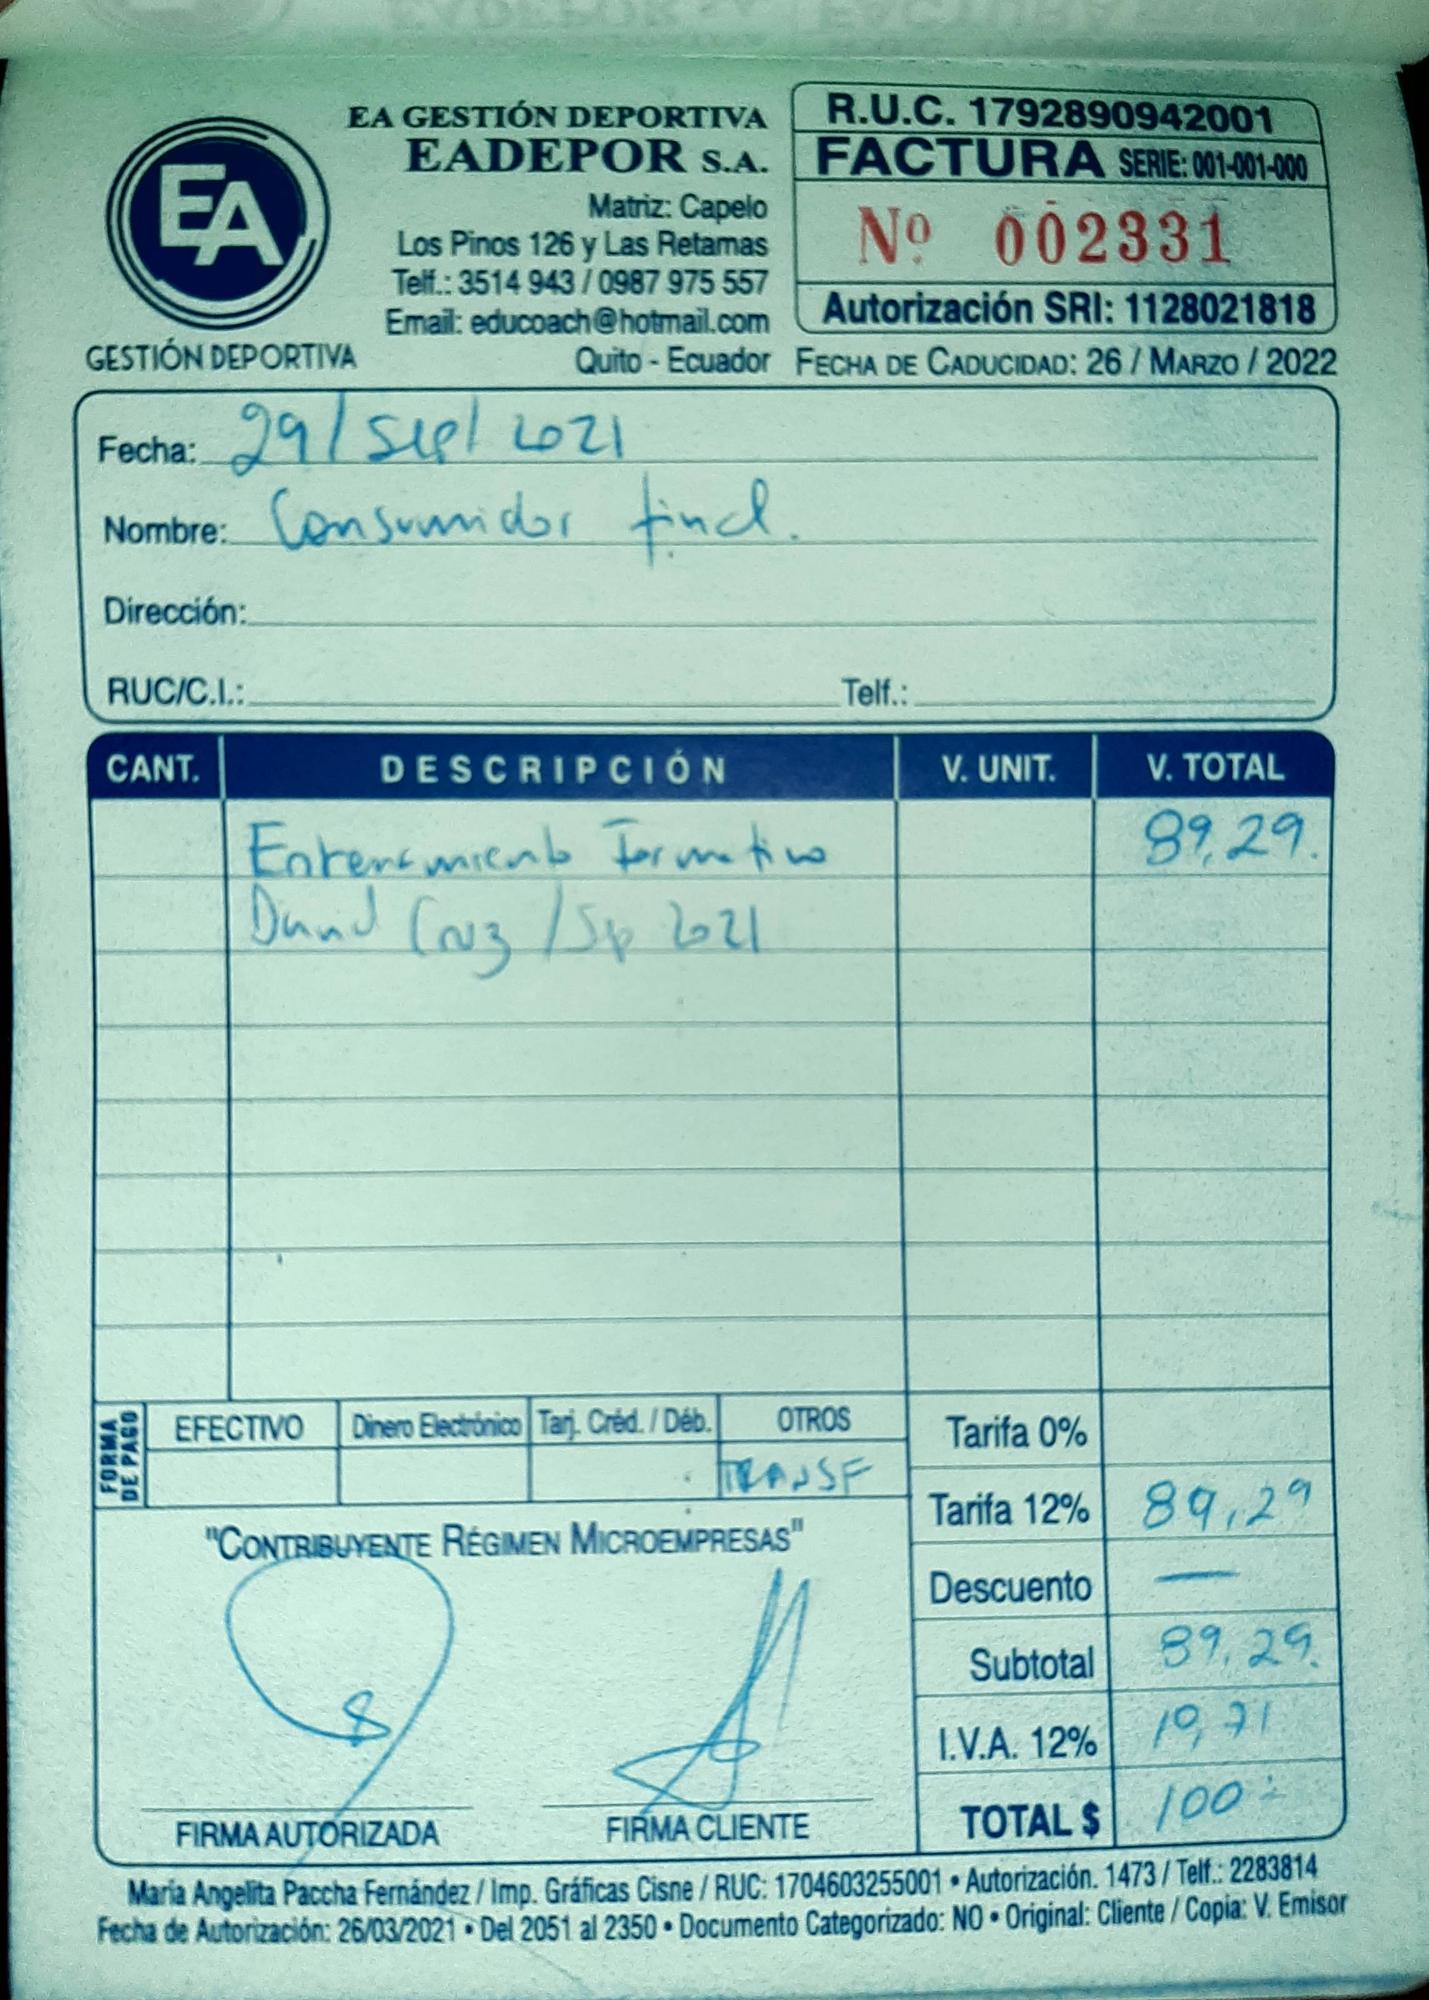 EA
GESTIÓN DEPORTIVA
EA GESTIÓN DEPORTIVA
EADEPOR S.A.
Matriz: Capelo
Los Pinos 126 y Las Retamas
Telf.: 3514 943 / 0987 975 557
Email: educoach@hotmail.com
Quito - Ecuador
R.U.C. 1792890942001
FACTURA SERIE: 001-001-000
Nº 002331
Autorización SRI: 1128021818
FECHA DE CADUCIDAD: 26 / MARZO / 2022
Fecha: 29/Sep/2021
Nombre: Consumidor final.
Dirección:
RUC/C.I.: Telf.:
CANT. DESCRIPCIÓN V. UNIT. V. TOTAL
Entrenamiento Formativo 89,29.
David Cruz /Sep 2021
FORMA DE PAGO EFECTIVO Dinero Electrónico Tarj. Créd. / Déb. OTROS
TRANSF
"CONTRIBUYENTE RÉGIMEN MICROEMPRESAS"
FIRMA AUTORIZADA FIRMA CLIENTE
Tarifa 0%
Tarifa 12% 89,29
Descuento —
Subtotal 89,29.
I.V.A. 12% 10,71
TOTAL $ 100
María Angelita Paccha Fernández / Imp. Gráficas Cisne / RUC: 1704603255001 • Autorización. 1473 / Telf.: 2283814
Fecha de Autorización: 26/03/2021 • Del 2051 al 2350 • Documento Categorizado: NO • Original: Cliente / Copia: V. Emisor